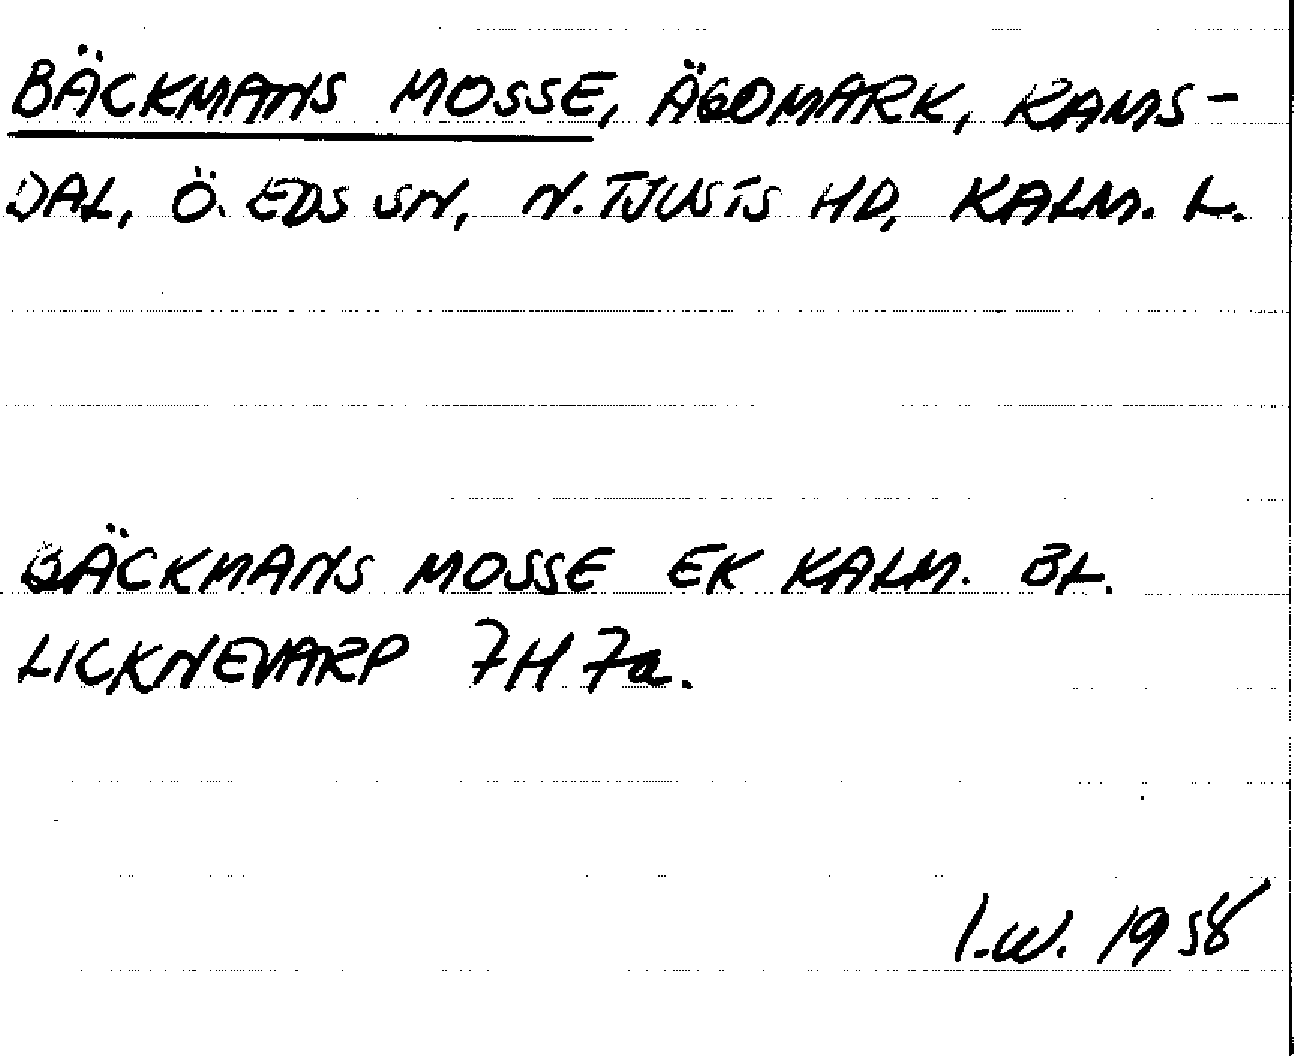 BÄCKMANS MOSSE, ÄGOMARK, RAMS-
DAL, Ö. EDS SN, N. TJUSTS HD, KALM. L.
BÄCKMANS MOSSE EK KALM. BL.
LICKNEVARP 7H 7a.
I.W. 1958